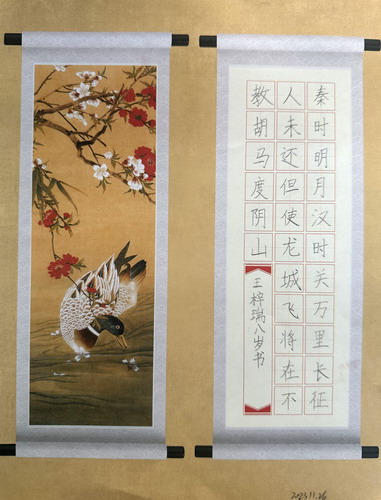 秦时明月汉时关万里长征
人未还但使龙城飞将在不
教胡马度阴山
王梓瑞八岁书
2023.11.26